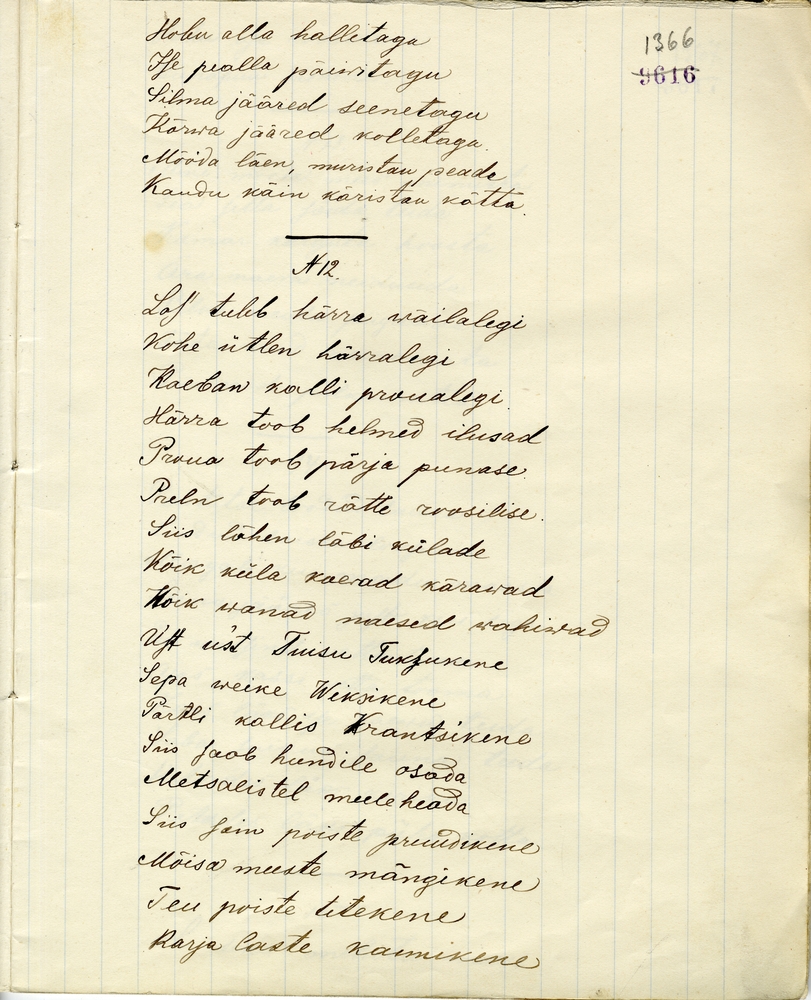 Hobu alla halletagu
Ise pealla päivitagu
Silma jääred seenetagu
Kõrwa jääred kolletagu.
Mööda läen, muristan peade
Kaudu käin käristan kätta.
1366
9616
N 12.
Las' tuleb härra wäilalegi
Kohe ütlen härralegi
Kaeban kalli proualegi.
Härra toob helmed ilusad
Proua toob pärja punase.
Preln toob rätte roosilise.
Siis lähen läbi külade
Kõik küla koerad kärawad
Kõik wanad naesed wahiwad
Ust üst Tuisu Tuksukene
Sepa weike Wiksikene
Pärtli kallis Krantsikene
Siis saab hundile osada
Metsalistel meeleheada
Siis sain poiste pruudikene
Mõisa meeste mängikene
Teu poiste titekene
Karja laste kannikene